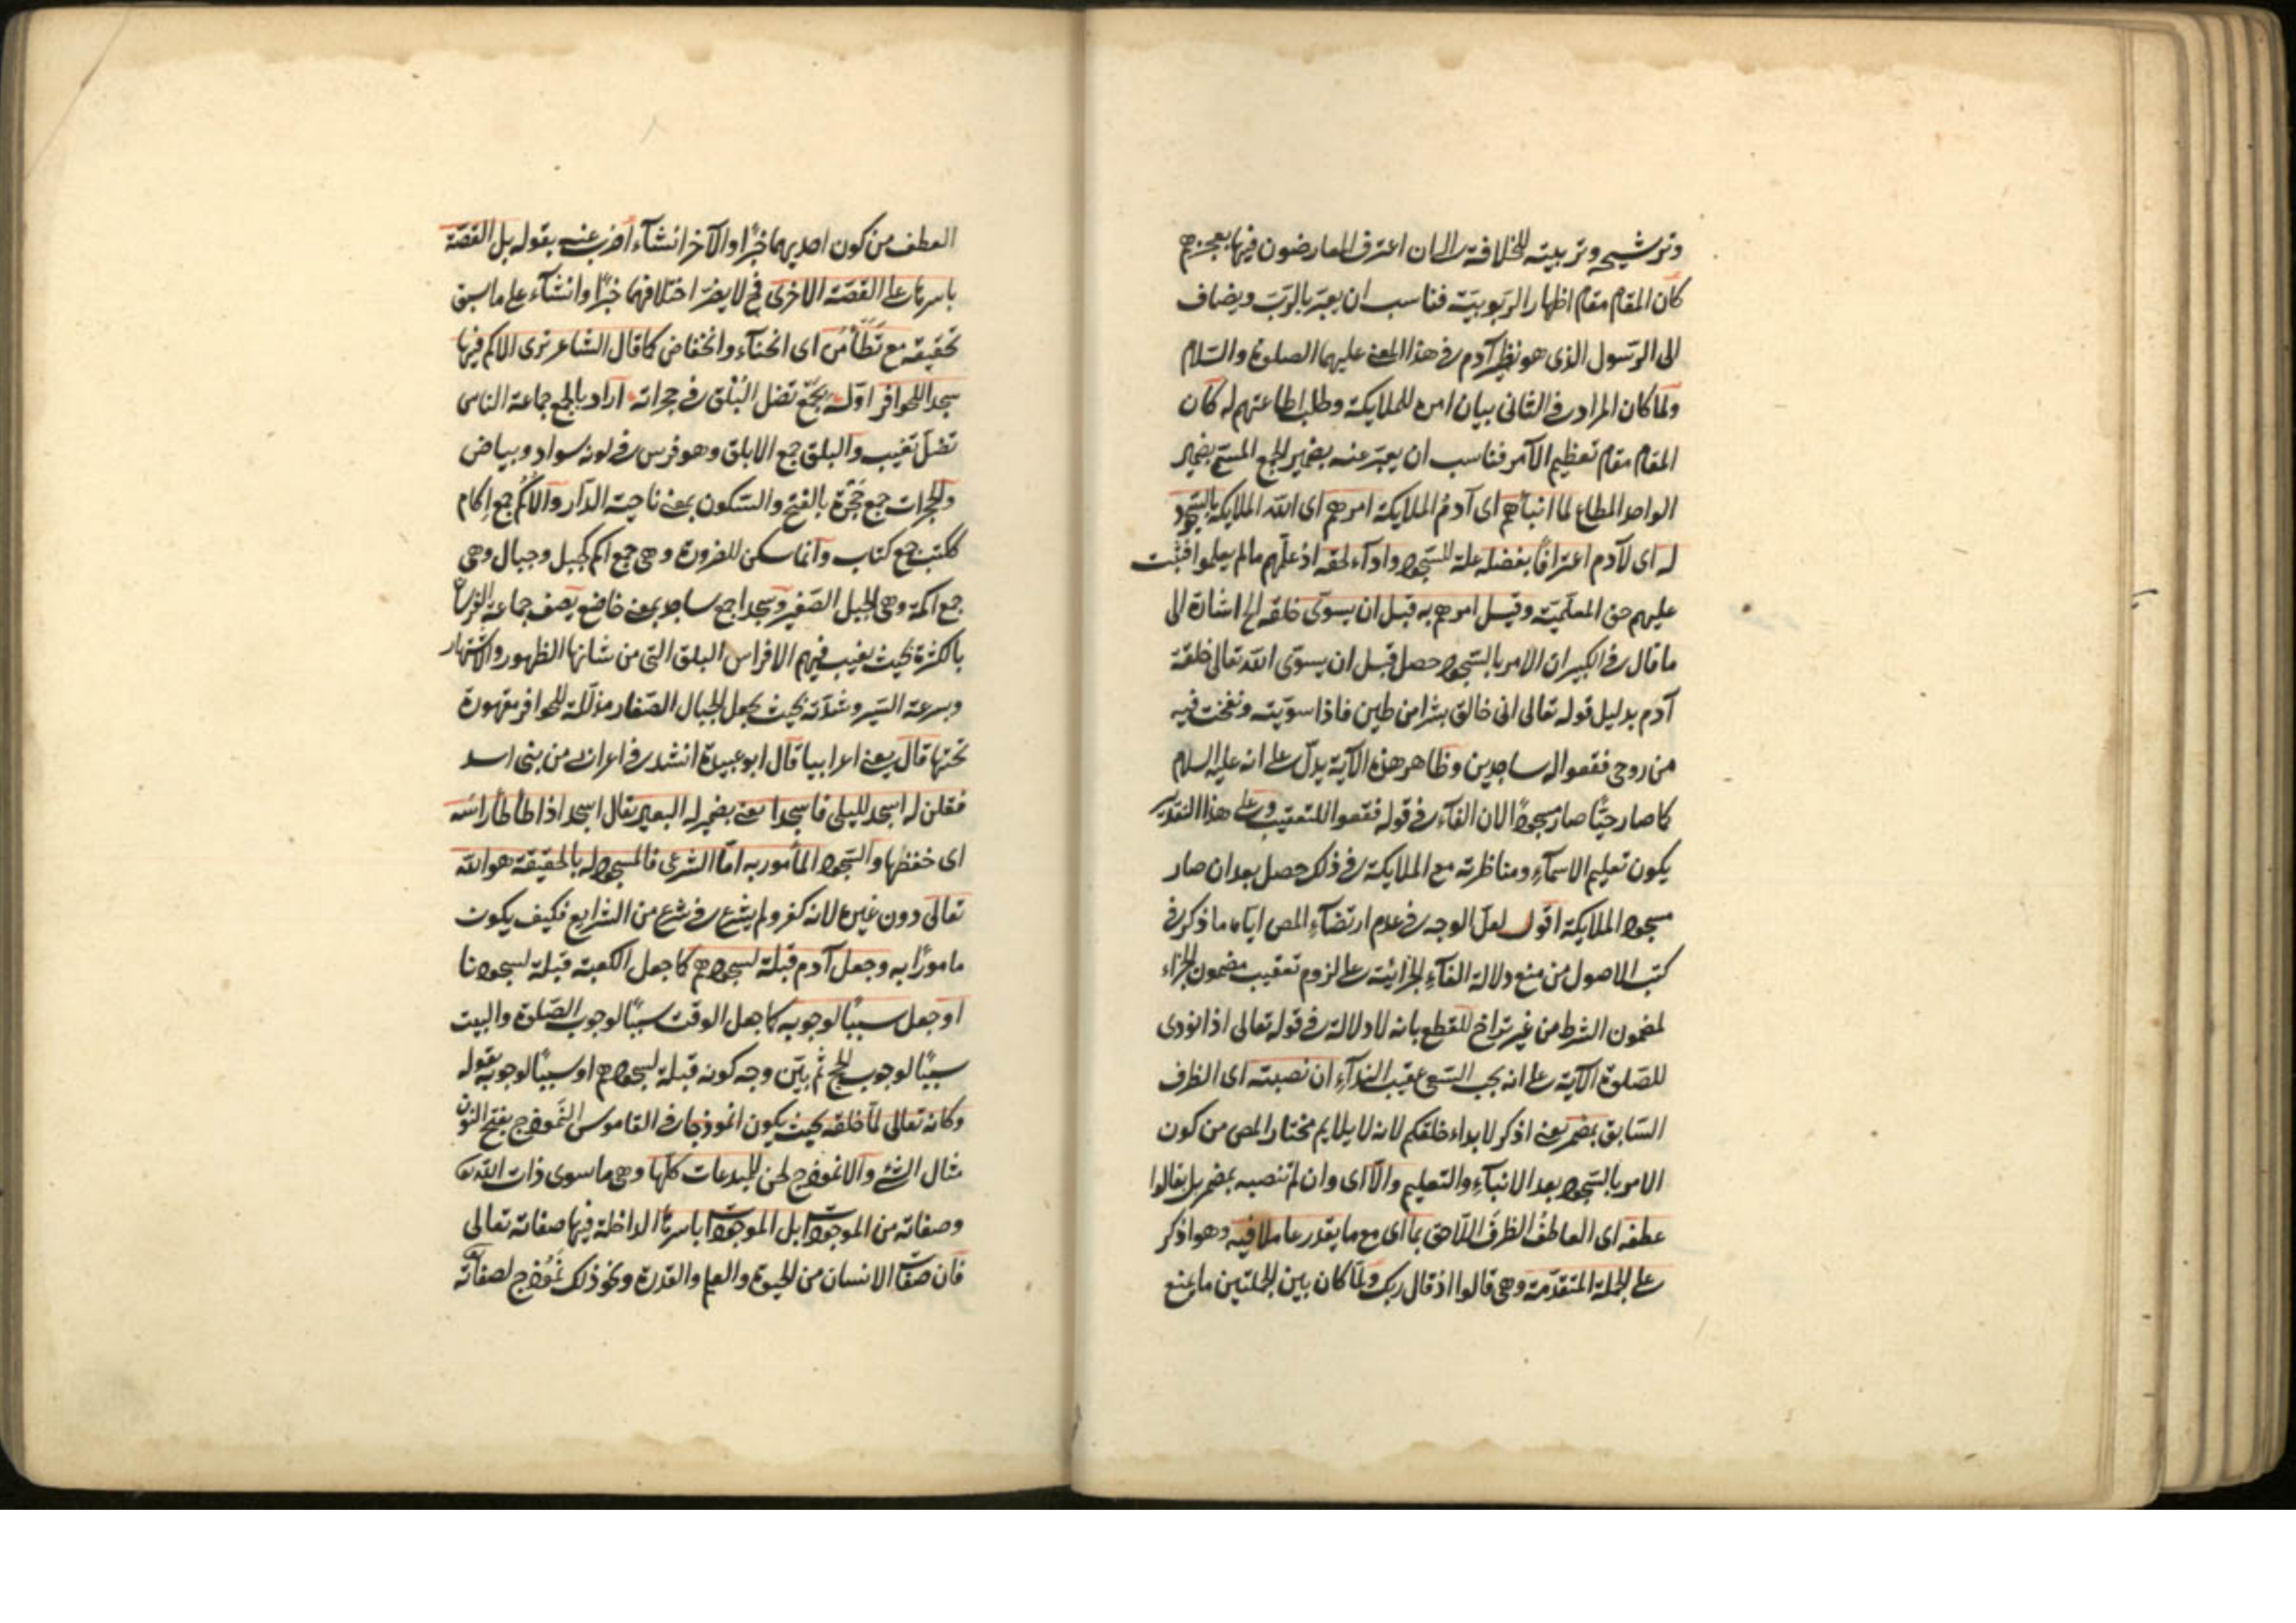 وترشيحه وتربيته للخلافة الى ان اعترف المعارضون فيها بعجزهم
كان المقام مقام اظهار الربوبيّة فناسب ان يعبّر بالربّ ويضاف
الى الرّسول الذى هو نظير آدم فى هذا المعنى عليهما الصلوة والسّلام
ولمّا كان المراد فى الثانى بيان امره للملايكة وطلب اطاعتهم له كان
المقام مقام تعظيم الآمر فناسب ان يعبّر عنه بضمير الجمع
الواحد المطاع لما انبأهم اى آدمُ الملايكة امرهم اى الله الملايكة بالسّجود
له اى لآدم اعترافًا بفضله علة للسّجود واداء لحقه اذ علّمهم ما لم يعلموا فثبت
عليهم حق المعلّميّة وقيل امرهم به قبل ان يسوّى خلقه الخ اشارة الى
ما قال فى الكبير ان الامر بالسّجود حصل قبل ان يسوّى الله تعالى خلقة
آدم بدليل قوله تعالى انى خالق بشرا من طين فاذا سوّيته ونفخت فيه
من روحى فقعوا له ساجدين وظاهر هذه الآية يدلّ على انه عليه السلام
كما صار حيًّا صار مسجودًا لان الفآء فى قوله فقعوا للتعقيب وعلى هذا التقدير
يكون تعليم الاسمآء ومناظرته مع الملايكة فى ذلك حصل بعد ان صار
مسجود الملايكة اقول لعلّ الوجه فى عدم ارتضآء المص اياه ما ذكر فى
كتب الاصول من منع دلالة الفآء الجزائيّة على لزوم تعقيب مضمون الجزاء
لمضمون الشرط من غير تراخ للقطع بانه لا دلالة فى قوله تعالى اذا نودى
للصّلوة الآية على انه يجب السّعى عقيب الندآء ان نصبته اى الظرف
السّابق بمضمر يعنى اذكر لا بداء خلقكم لانه لا يلايم مختار المص من كون
الامر بالسّجود بعد الانبآء والتعليم والّا اى وان لم تنصبه بمضمر بل بقالوا
عطفه اى العاطفُ الظرفَ اللّاحق بما اى مع ما يقدر عاملا فيه وهو اذكر
على الجملة المتقدّمة وهى قالوا اذ قال ربك ولمّا كان بين الجملتين ما يمنع
العطف من كون احديهما خبرًا والآخر انشآء اضرب عنه بقوله بل القصّة
باسرها على القصّة الاخرى فح لا يضرّ اختلافهما خبرًا وانشآء على ما سبق
تحقيقه مع تَطَأْمُن اى انحنآء وانخفاض كما قال الشاعر ترى الاكم فيها
سجدا للحوافر اوّله بجَمْع تضل البُلْق فى حجراته اراد بالجمع جماعة الناس
تضل تغيب والبلق جمع الابلق وهو فرس فى لونه سواد وبياض
والحجرات جمع حَجْرة بالفتح والسّكون بمعنى ناحية الدّار والأُكُم جمع اكام
ككتب جمع كتاب وانما سكن للضرورة وهى جمع اكم كجبل وجبال وهى
جمع اكمة وهى الجبل الصّغير وسجدا جمع ساجد بمعنى خاضع يصف جماعة
بالكثرة بحيث يغيب فيهم الافراس البلق التى من شانها الظهور والاشتهار
وبسرعة السّير وشدّته بحيث يجعل الجبال الصّغار مذلّلة للحوافر مقهورة
تحتها قال يعنى اعرابيا قال ابو عبيدة انشد فى اعرابى من بنى اسد
فقلن له اسجد لليلى فاسجدا يعنى بضمير له البعير يقال اسجد اذا طأطأ راسه
اى خفضها والسّجود المأمور به امّا الشرعى فالمسجود له بالحقيقة هو الله
تعالى دون غيره لانه كفر ولم يشرع فى شرع من الشرايع فكيف يكون
مامورًا به وجعل آدم قبلة لسجودهم كما جعل الكعبة قبلة لسجودنا
او جعل سببًا لوجوبه كما جعل الوقت سببًا لوجوب الصّلوة والبيت
سببًا لوجوب الحج ثم بيّن وجه كونه قبلة لسجودهم او سببًا لوجوبه بقوله
وكانه تعالى لمّا خلقه بحيث يكون انموذجا فى القاموس النَّموذج بفتح النون
مثال الشئ والانموذج لحن للمبدعات كلّها وهى ما سوى ذات الله تعالى
وصفاته من الموجودات بل الموجودات باسرها الداخلة فيها صفاته تعالى
فان صفات الانسان من الحيوة والعلم والقدرة ونحو ذلك نَمُوذج لصفاته